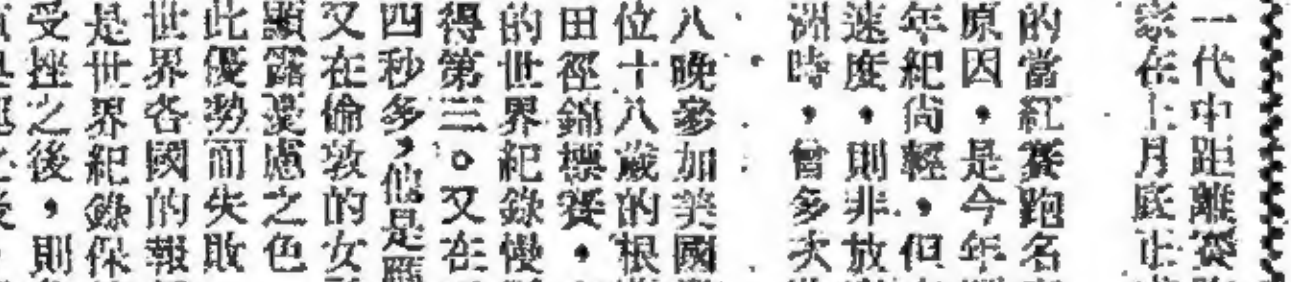 一代中距離賽跑
家在上月底正
的當紅賽跑名
原因,是今年
年紀尚輕,但
速度,則非放
洲時,曾多次
八晚參加美國
位十八歲的根
田徑錦標賽,
的世界紀錄慢
得第三。又在
四秒多,他是
又在倫敦的女
顯露憂慮之色
此優勢而失敗
世界各國的報
是世界紀錄保
受挫之後,則